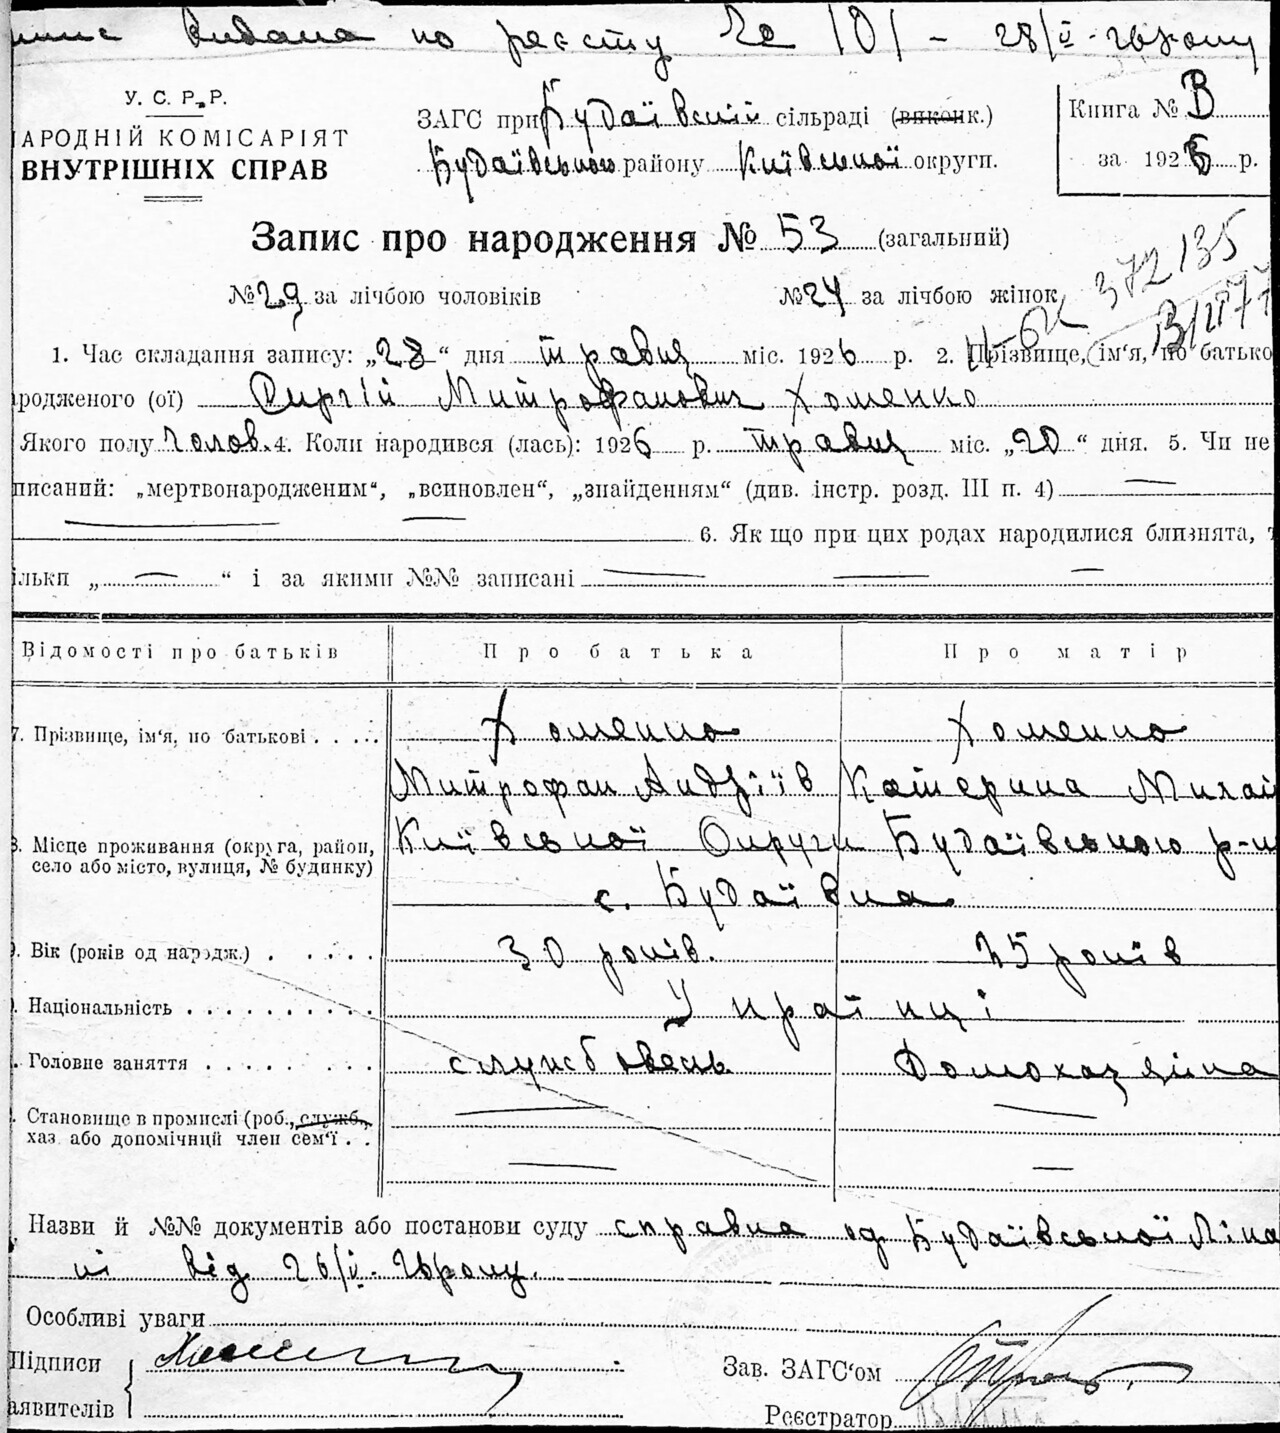 видана по реєстру № 101 – 28/V - 26 року
У. С. Р. Р.
АРОДНІЙ КОМІСАРІЯТ
ВНУТРІШНІХ СПРАВ
ЗАГС при Будаївській сільраді (виконк.)
Будаївського району Київської округи.
Книга № В
за 1926 р.
Запис про народження № 53 (загальний)
372135
№ 29 за лічбою чоловіків № 24 за лічбою жінок
1. Час складання запису: „28“ дня травня міс. 1926 р. 2. Прізвище, ім‘я, по батько
родженого (ої) Сиргій Митрофанович Хоменко
Якого полу чолов. 4. Коли народився (лась): 1926 р. травня міс. „20“ дня. 5. Чи не
писаний: „мертвонародженим“, „всиновлен“, „знайденням“ (див. інстр. розд. III п. 4) —
6. Як що при цих родах народилися близнята, т
ільки „ — “ і за якими №№ записані — — —
Відомості про батьків Про батька Про матір
7. Прізвище, ім‘я, по батькові . . . . . Хоменко Хоменко
Митрофан Андріїв Катерина Михай
8. Місце проживання (округа, район,
село або місто, вулиця, № будинку)
Київської Округи Будаївського р-н
с. Будаївка
9. Вік (років од народж.) . . . . . 30 років. 25 років
. Національність . . . . . . . . . . Українці
. Головне заняття . . . . . . . . службовець Домохазяйка
. Становище в промислі (роб., служб.,
хаз або допомічнцй член сем‘ї . .
Назви й №№ документів або постанови суду справка од Будаївської Ліка
ні від 26/V - 26 року.
Особливі уваги
Підписи
аявителів
Зав. ЗАГС‘ом
Реєстратор